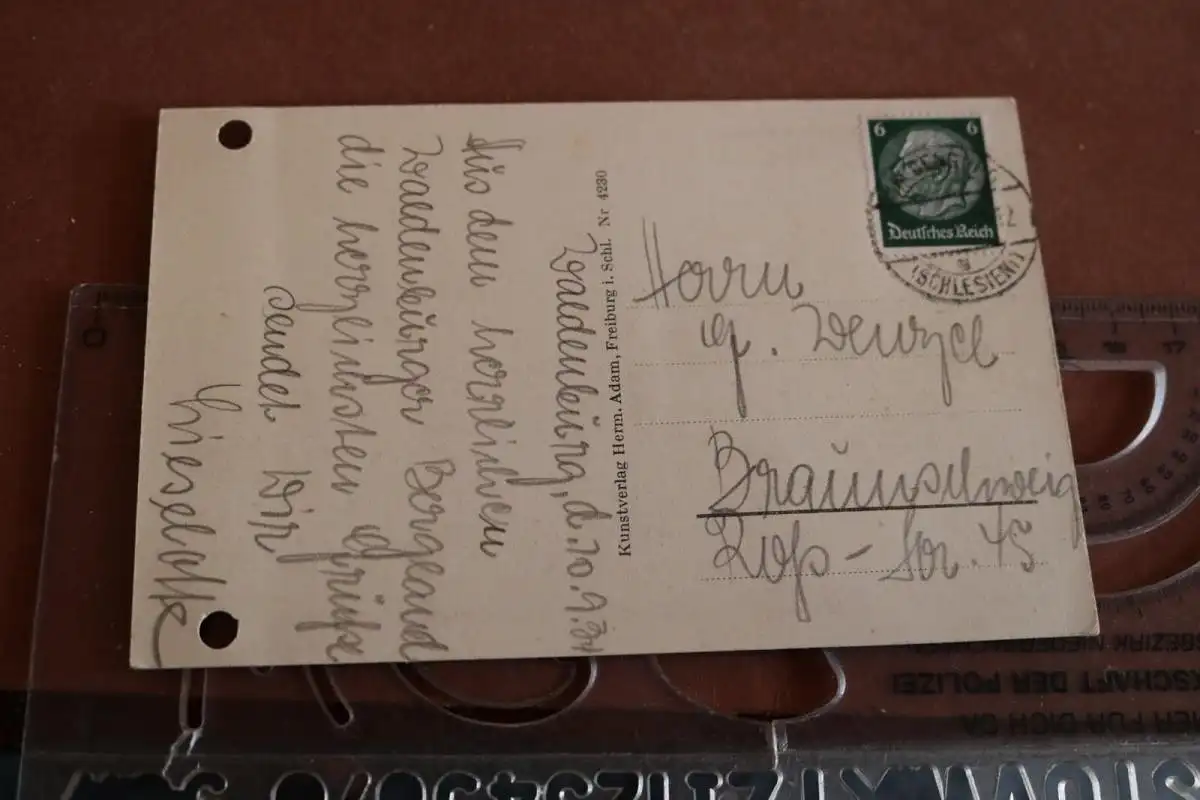 Waldenburg, d. 10.9.34
Aus dem herrlichen
Waldenburger Bergland
die herzlichsten Grüße
sendet Dir
Lieselotte
Kunstverlag Herm. Adam, Freiburg i. Schl. Nr 4230
6 6
Deutsches Reich
(SCHLESIEN)
Herrn
G. Wenzel
Braunschweig
Str. 45
BEZIRK
KSCHAFT DER POLIZEI
FÜR DICH